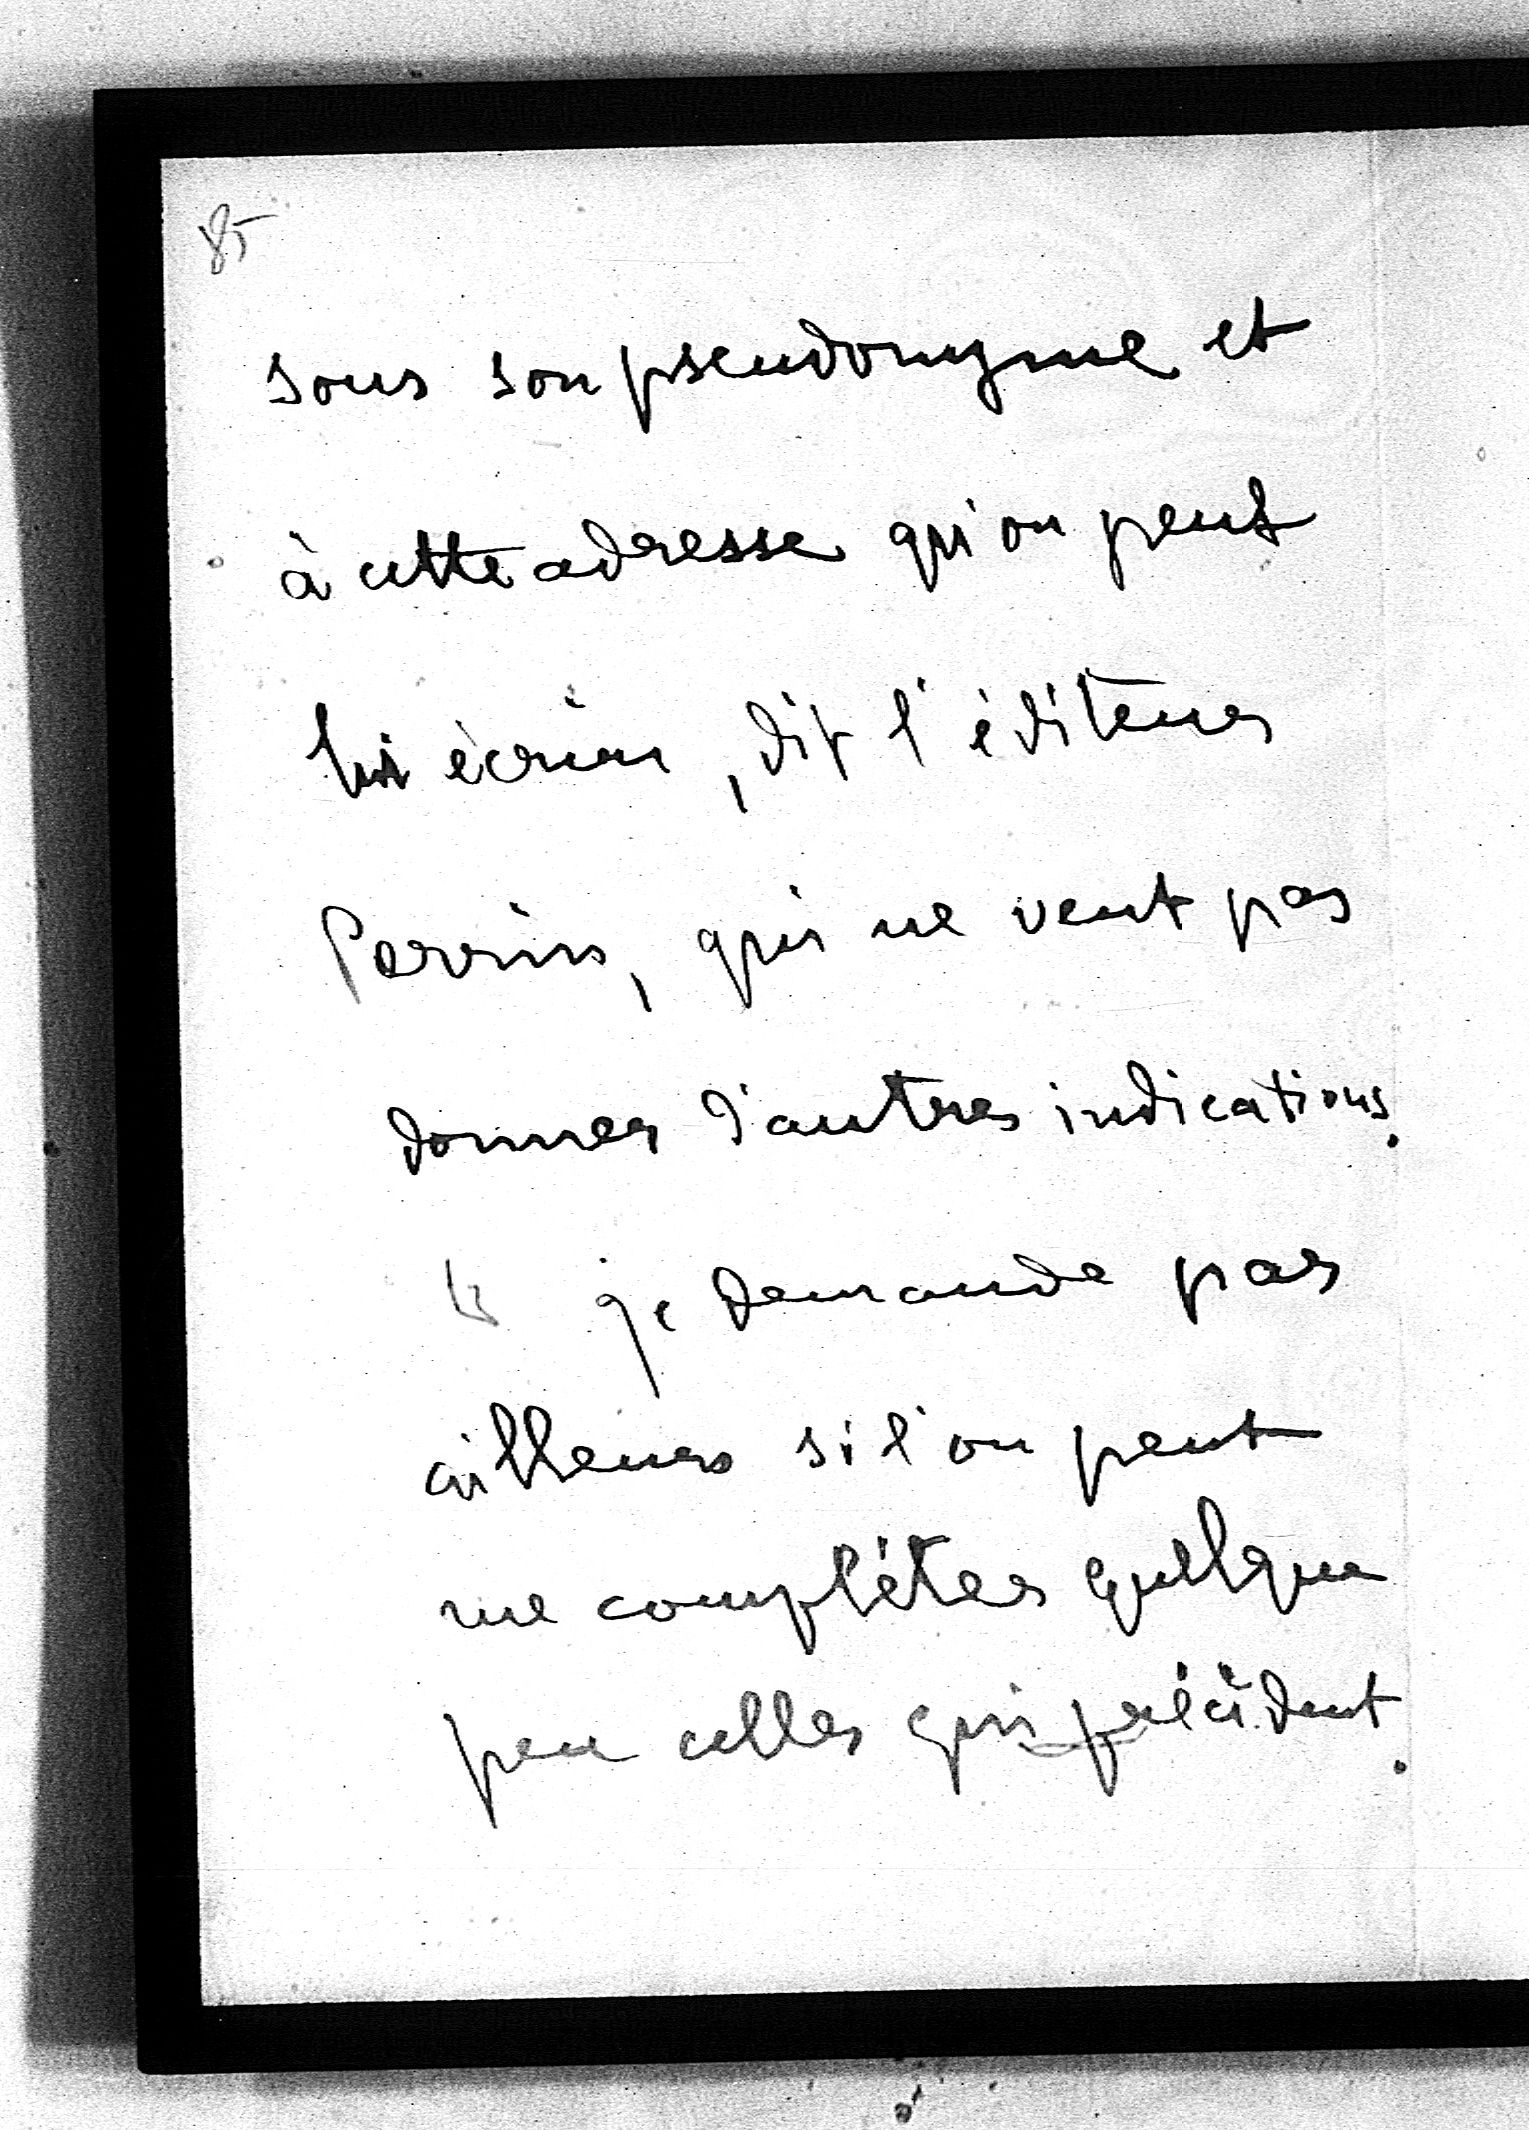 85
sous son pseudonyme et
à cette adresse qu'on peut
lui écrire, dit l'éditeur
Perrin, qui ne veut pas
donner d'autres indications.
je demande par
ailleurs si l'on peut
me complèter quelque
peu celles qui précèdent.